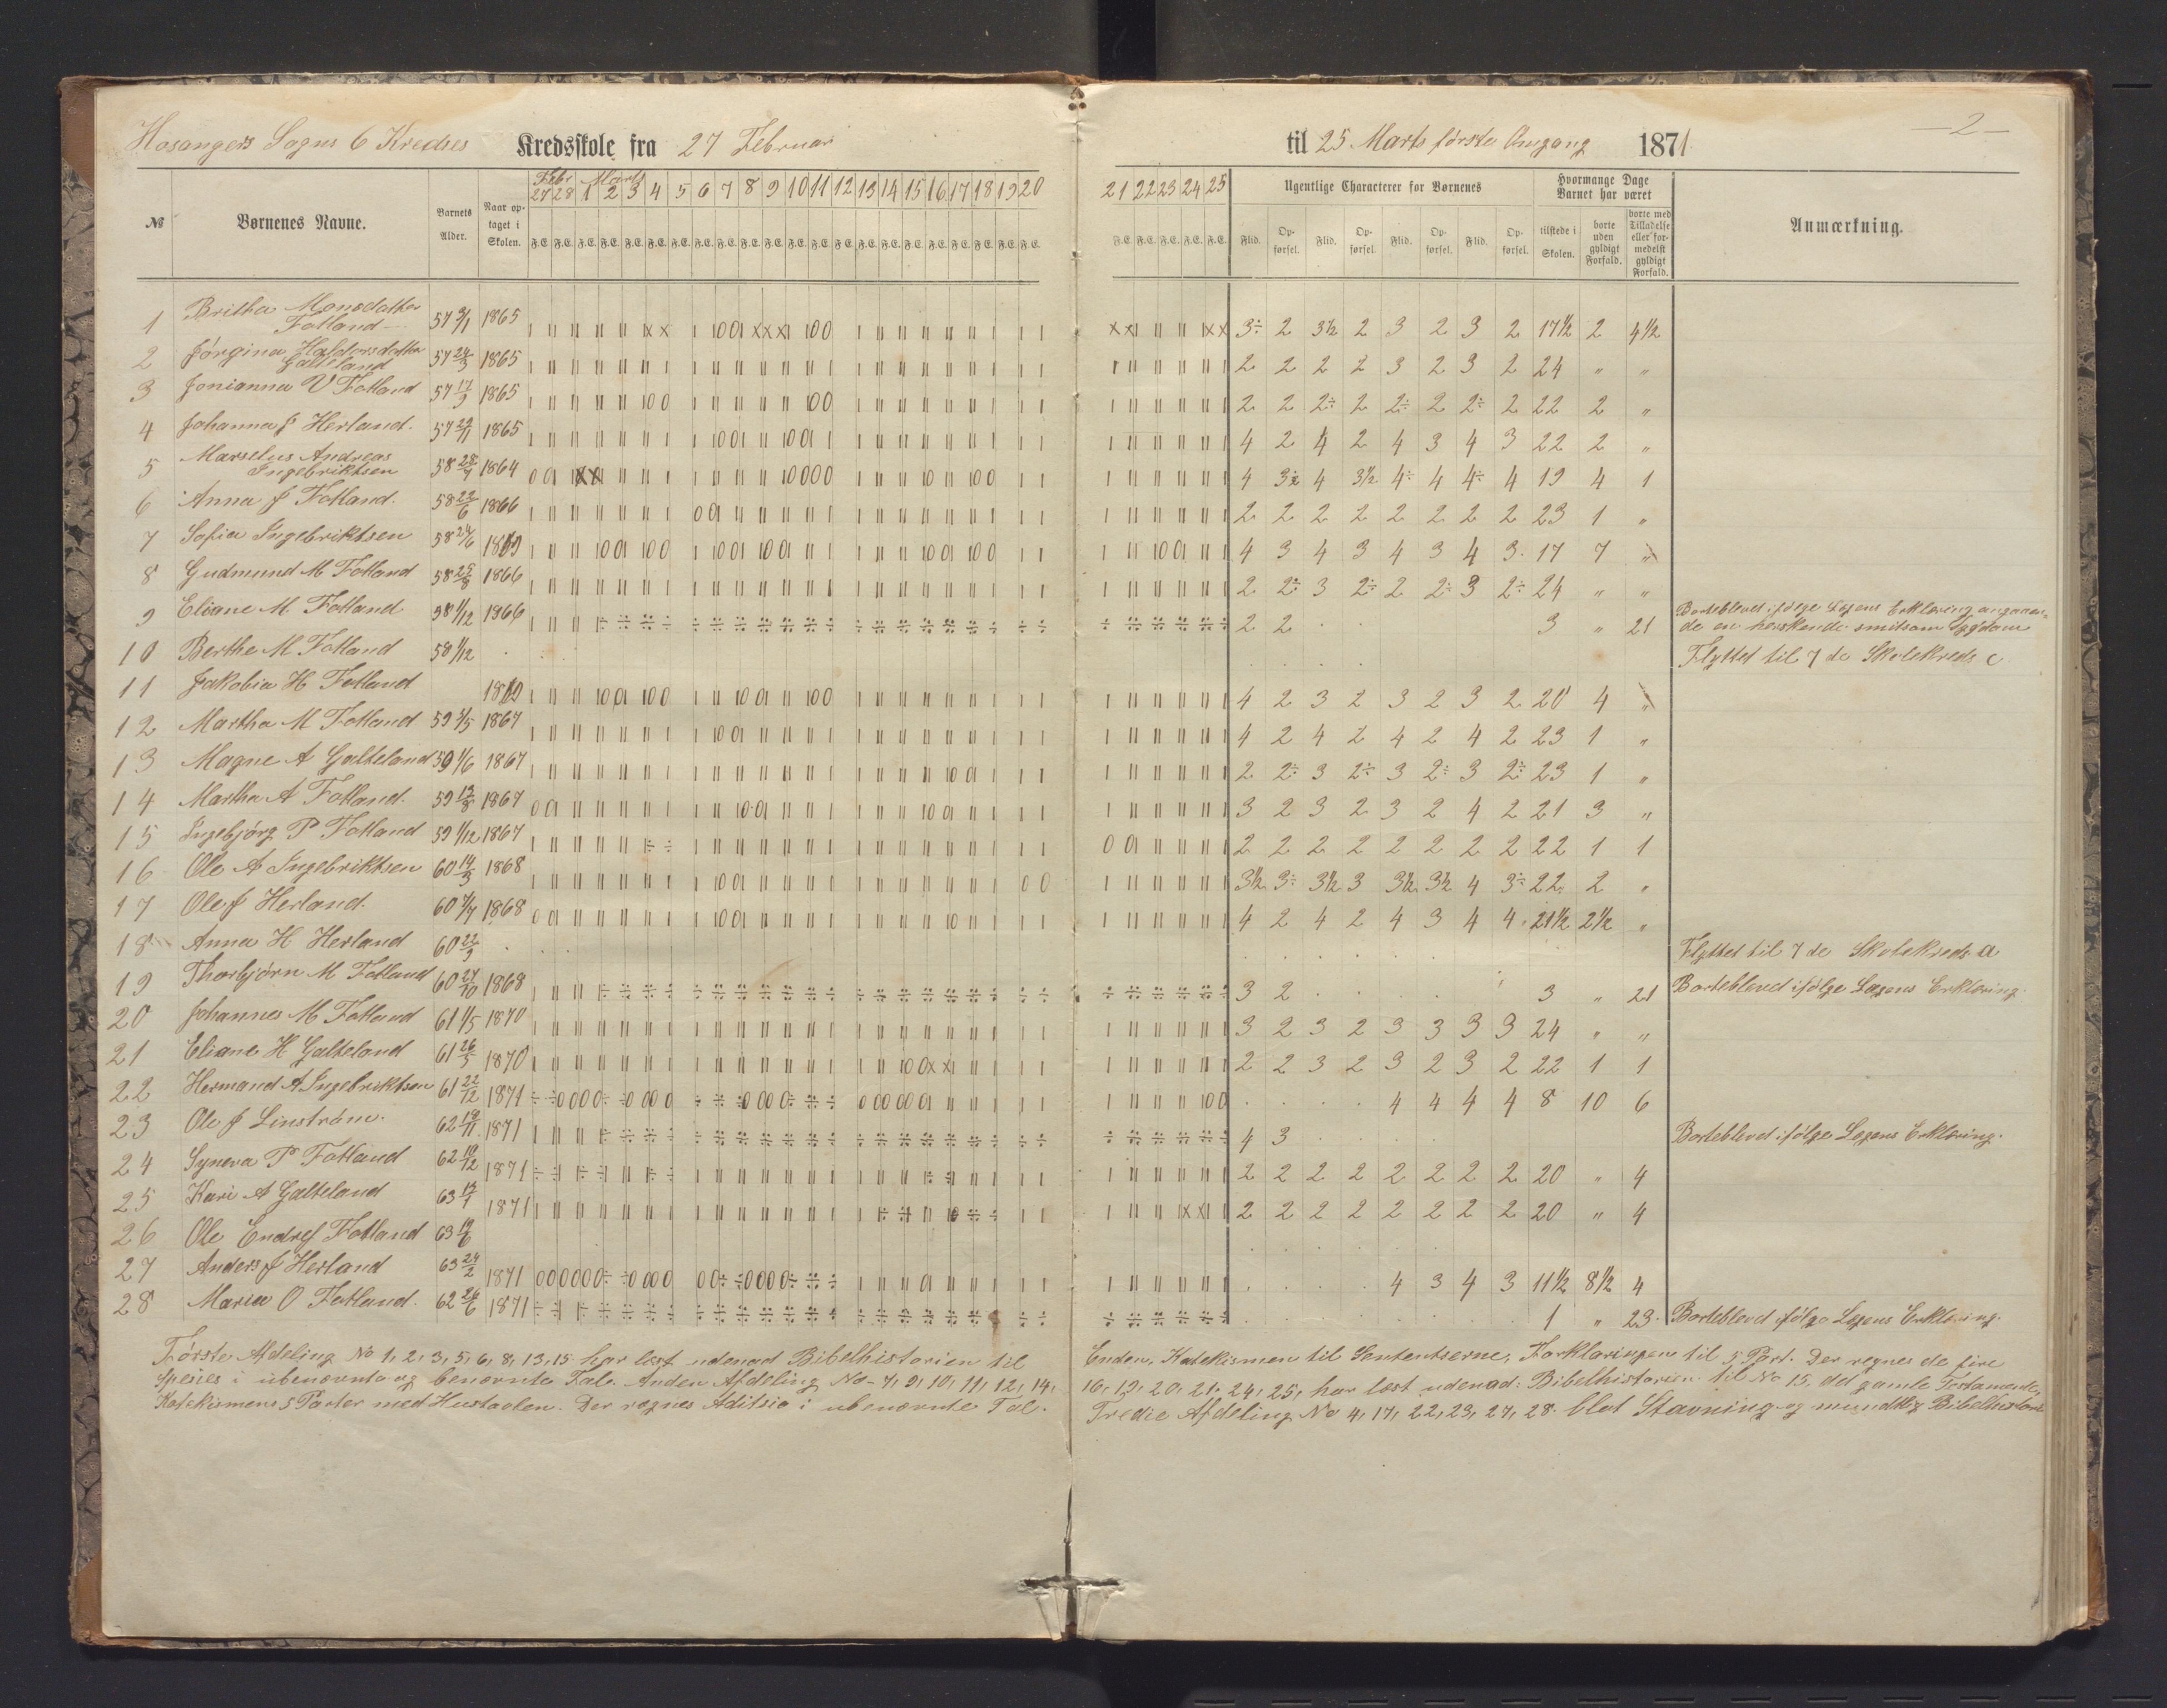 Hosangers Sogns 6 Kredses Kredsskole fra 27 Februar til 25 Marts første Omgang 1871. — 2 —
№ Børnenes Navne. Barnets Alder. Naar optaget i Skolen. Febr Marts 27 28 1 2 3 4 5 6 7 8 9 10 11 12 13 14 15 16 17 18 19 20 21 22 23 24 25 Ugentlige Characterer for Børnenes Hvormange Dage Barnet har været Anmærkning.
F.E. F.E. F.E. F.E. F.E. F.E. F.E. F.E. F.E. F.E. F.E. F.E. F.E. F.E. F.E. F.E. F.E. F.E. F.E. F.E. F.E. F.E. F.E. F.E. F.E. F.E. Flid. Opførsel. Flid. Opførsel. Flid. Opførsel. Flid. Opførsel. tilstede i Skolen. borte uden gyldigt Forfald. borte med Tilladelse eller formedelst gyldigt Forfald.
1 Britha Monsdatter Fotland 57 9/1 1865 3÷ 2 3½ 2 3 2 3 2 17½ 2 4½
2 Jørgina Haldorsdatter Galteland 57 24/3 1865 2 2 2 2 3 2 3 2 24 " "
3 Jonianna V Fotland 57 17/9 1865 2 2 2÷ 2 2÷ 2 2÷ 2 22 2 "
4 Johanna J Herland. 57 29/11 1865 4 2 4 2 4 3 4 3 22 2 "
5 Marselus Andreas Ingebriktsen 58 1864 4 4 3½ 4÷ 4 4÷ 4 19 4 1
6 Anna J Fotland. 58 22/6 1866 2 2 2 2 2 2 2 2 23 1 "
7 Sofia Ingebriktsen 58 24/6 4 3 4 3 4 3 4 3. 17 7
8 Gudmund M Fotland 58 1866 2 2÷ 3 2÷ 2 2÷ 3 2÷ 24 " "
9 Eliane M Fotland 58 1/12 1866 2 2 3 " 21 Borteblevet ifølge Lægens Erklæring angaaende en herskende smitsom Sygdom
10 Berthe M Fotland 58 1/12 Flyttet til 7de Skolekreds
11 Jakobia H Fotland 4 2 3 2 3 2 3 2 20 4
12 Martha M Fotland 59 1867 4 2 4 2 4 2 4 2 23 1 "
13 Magne A Galteland 59 1/6 1867 2 2÷ 3 2÷ 3 2÷ 3 2÷ 23 1 "
14 Martha A Fotland. 59 13/8 1867 3 2 3 2 3 2 4 2 21 3 "
15 Ingebjørg P Fotland 59 1/12 1867 2 2 2 2 2 2 2 2 22 1 1
16 Ole A Ingebriktsen 60 14/3 1868 3½ 3÷ 3½ 3 3½ 3½ 4 3÷ 22 2 "
17 Ole J Herland. 60 1868 4 2 4 2 4 3 4 4 21½ 2½ "
18 Anna H Herland 60 22/9 Flyttet til 7de Skolekreds
19 Thorbjørn M Fotland 60 27/10 1868 3 2 3 " 21 Borteblevet ifølge Lægens Erklæring.
20 Johannes M Fotland 61 1/5 1870 3 2 3 2 3 3 3 3 24 " "
21 Eliane H Galteland 61 26/5 1870 2 2 3 2 3 2 3 2 22 1 1
22 Hermand A Ingebriktsen 61 22/12 1871 4 4 4 4 8 10 6
23 Ole J Linstrøm. 62 1871 4 3 Borteblevet ifølge Lægens Erklæring.
24 Syneva P Fotland 62 1871 2 2 2 2 2 2 2 2 20 " 4
25 Kari A Galteland 63 1871 2 2 2 2 2 2 2 2 20 " 4
26 Ole Endres Fotland 63
27 Anders J Herland 63 24/2 1871 4 3 4 3 11½ 8½ 4
28 Maria O Fotland. 62 24/6 1871 1 " 23. Borteblevet ifølge Lægens Erklæring.
Første Afdeling No 1, 2, 3, 5, 6, 8, 13, 15 har læst udenad Bibelhistorien til Enden, Katekismen til Sententserne, Forklaringen til 5 Part. Der regnes de fire
Spesies i ubenævnte og benævnte Tal. Anden Afdeling No 7, 9, 10, 11, 12, 14, 16, 19, 20, 21, 24, 25, har læst udenad: Bibelhistorien til No 15, det gamle Testamente,
Katekismens 5 Parter med Hustavlen. Der regnes Aditsio i ubenævnte Tal. Tredie Afdeling No 4, 17, 22, 23, 27, 28. blot Stavning og mundtlig Bibelhistorie